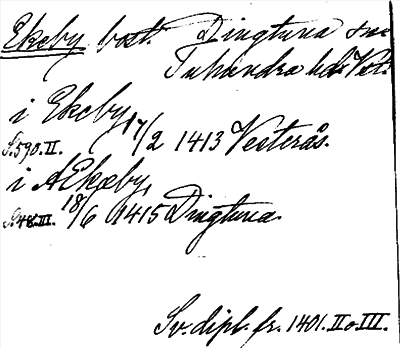 Ekeby bost. Dingtuna sn.
Tuhundra hd. Vst.
i Ekeby,
S. 590. II. 17/2 1413 Vesterås.
i Ækeby,
S. 48. III. 18/6 1415 Dingtuna.
Sv. dipl. fr. 1401. II o III.